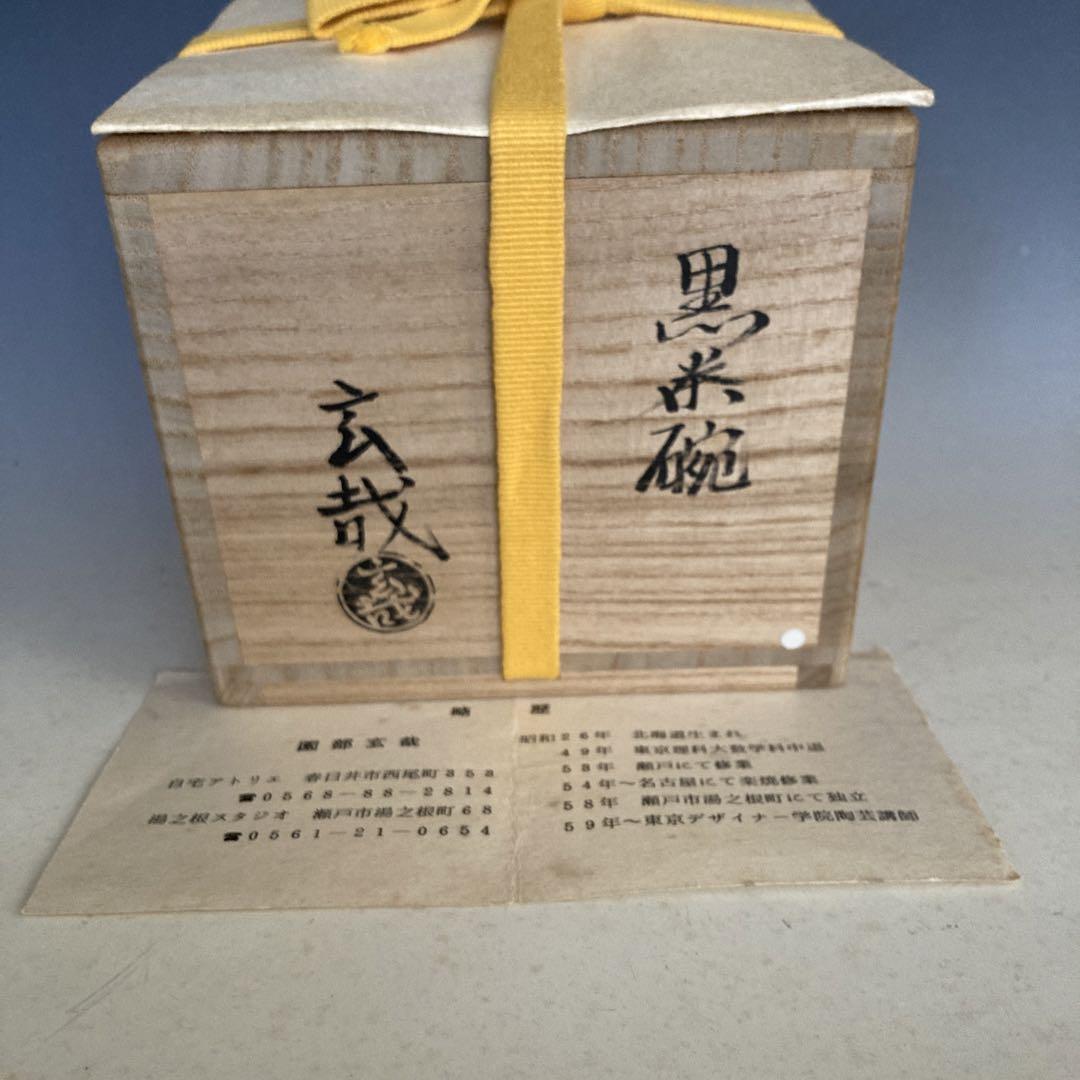 黒米碗
玄哉
玄哉
略歴
園部玄哉
自宅アトリエ 春日井市西尾町353
☎0568-88-2814
湯之根スタジオ 瀬戸市湯之根町68
☎0561-21-0654
昭和26年 北海道生まれ
49年 東京理科大数学科中退
53年 瀬戸にて修業
54年~名古屋にて楽焼修業
58年 瀬戸市湯之根町にて独立
59年~東京デザイナー学院陶芸講師